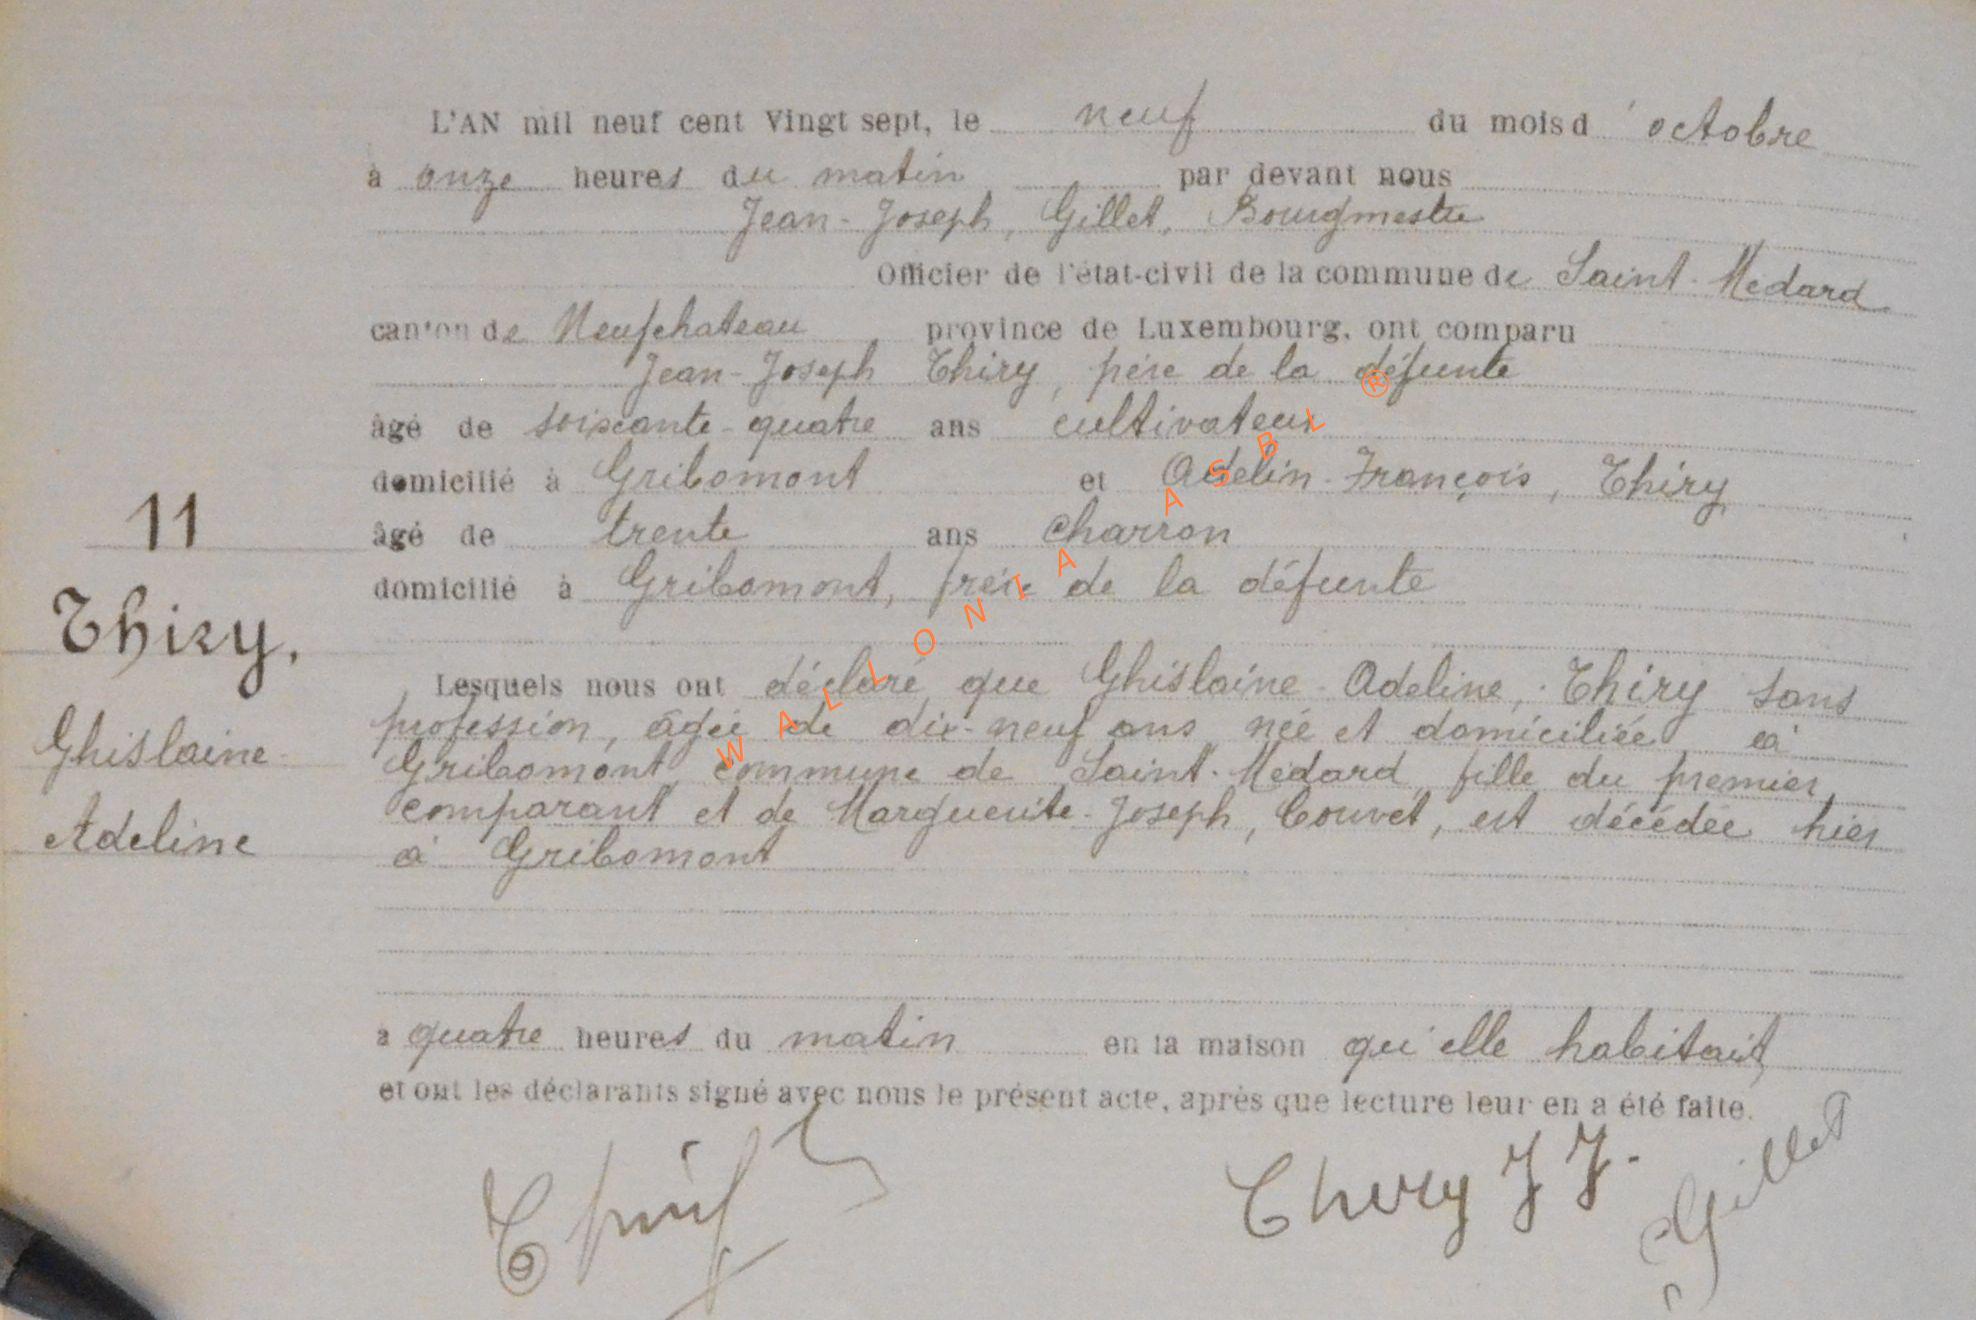 L'AN mil neuf cent Vingt sept, le neuf du mois d'octobre
à onze heures du matin par devant nous
Jean-Joseph, Gillet, Bourgmestre
Officier de l'état-civil de la commune de Saint-Médard
canton de Neufchateau province de Luxembourg, ont comparu
Jean-Joseph Thiry, père de la défunte
âgé de soixante-quatre ans cultivateur
domicilié à Gribomont et Adelin-François, Thiry
11
âgé de trente ans charron
domicilié à Gribomont, frère de la défunte
Thiry,
Ghislaine-
Adeline
Lesquels nous ont déclaré que Ghislaine-Adeline, Thiry sans
profession, âgée de dix-neuf ans née et domiciliée à
Gribomont commune de Saint-Médard fille du premier
comparant et de Marguerite-Joseph, Couvet, est décédée hier
à Gribomont
à quatre heures du matin en la maison qu'elle habitait
et ont les déclarants signé avec nous le présent acte, après que lecture leur en a été faite.
Thiry JJ. Gillet
WALLONIA ASBL ®